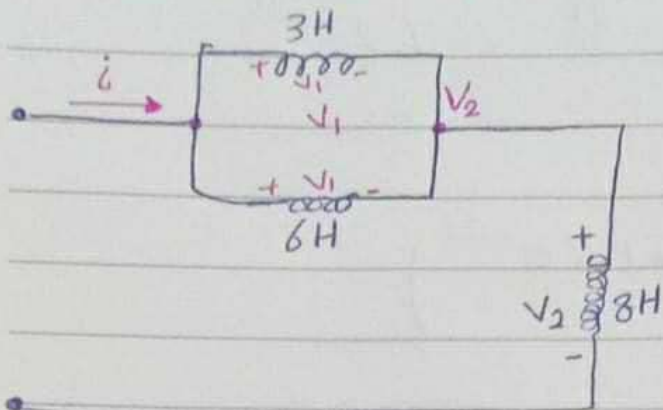 3H
+ V₁ -
i
V₁
V₂
+ V₁ -
6H
+
V₂ 8H
-